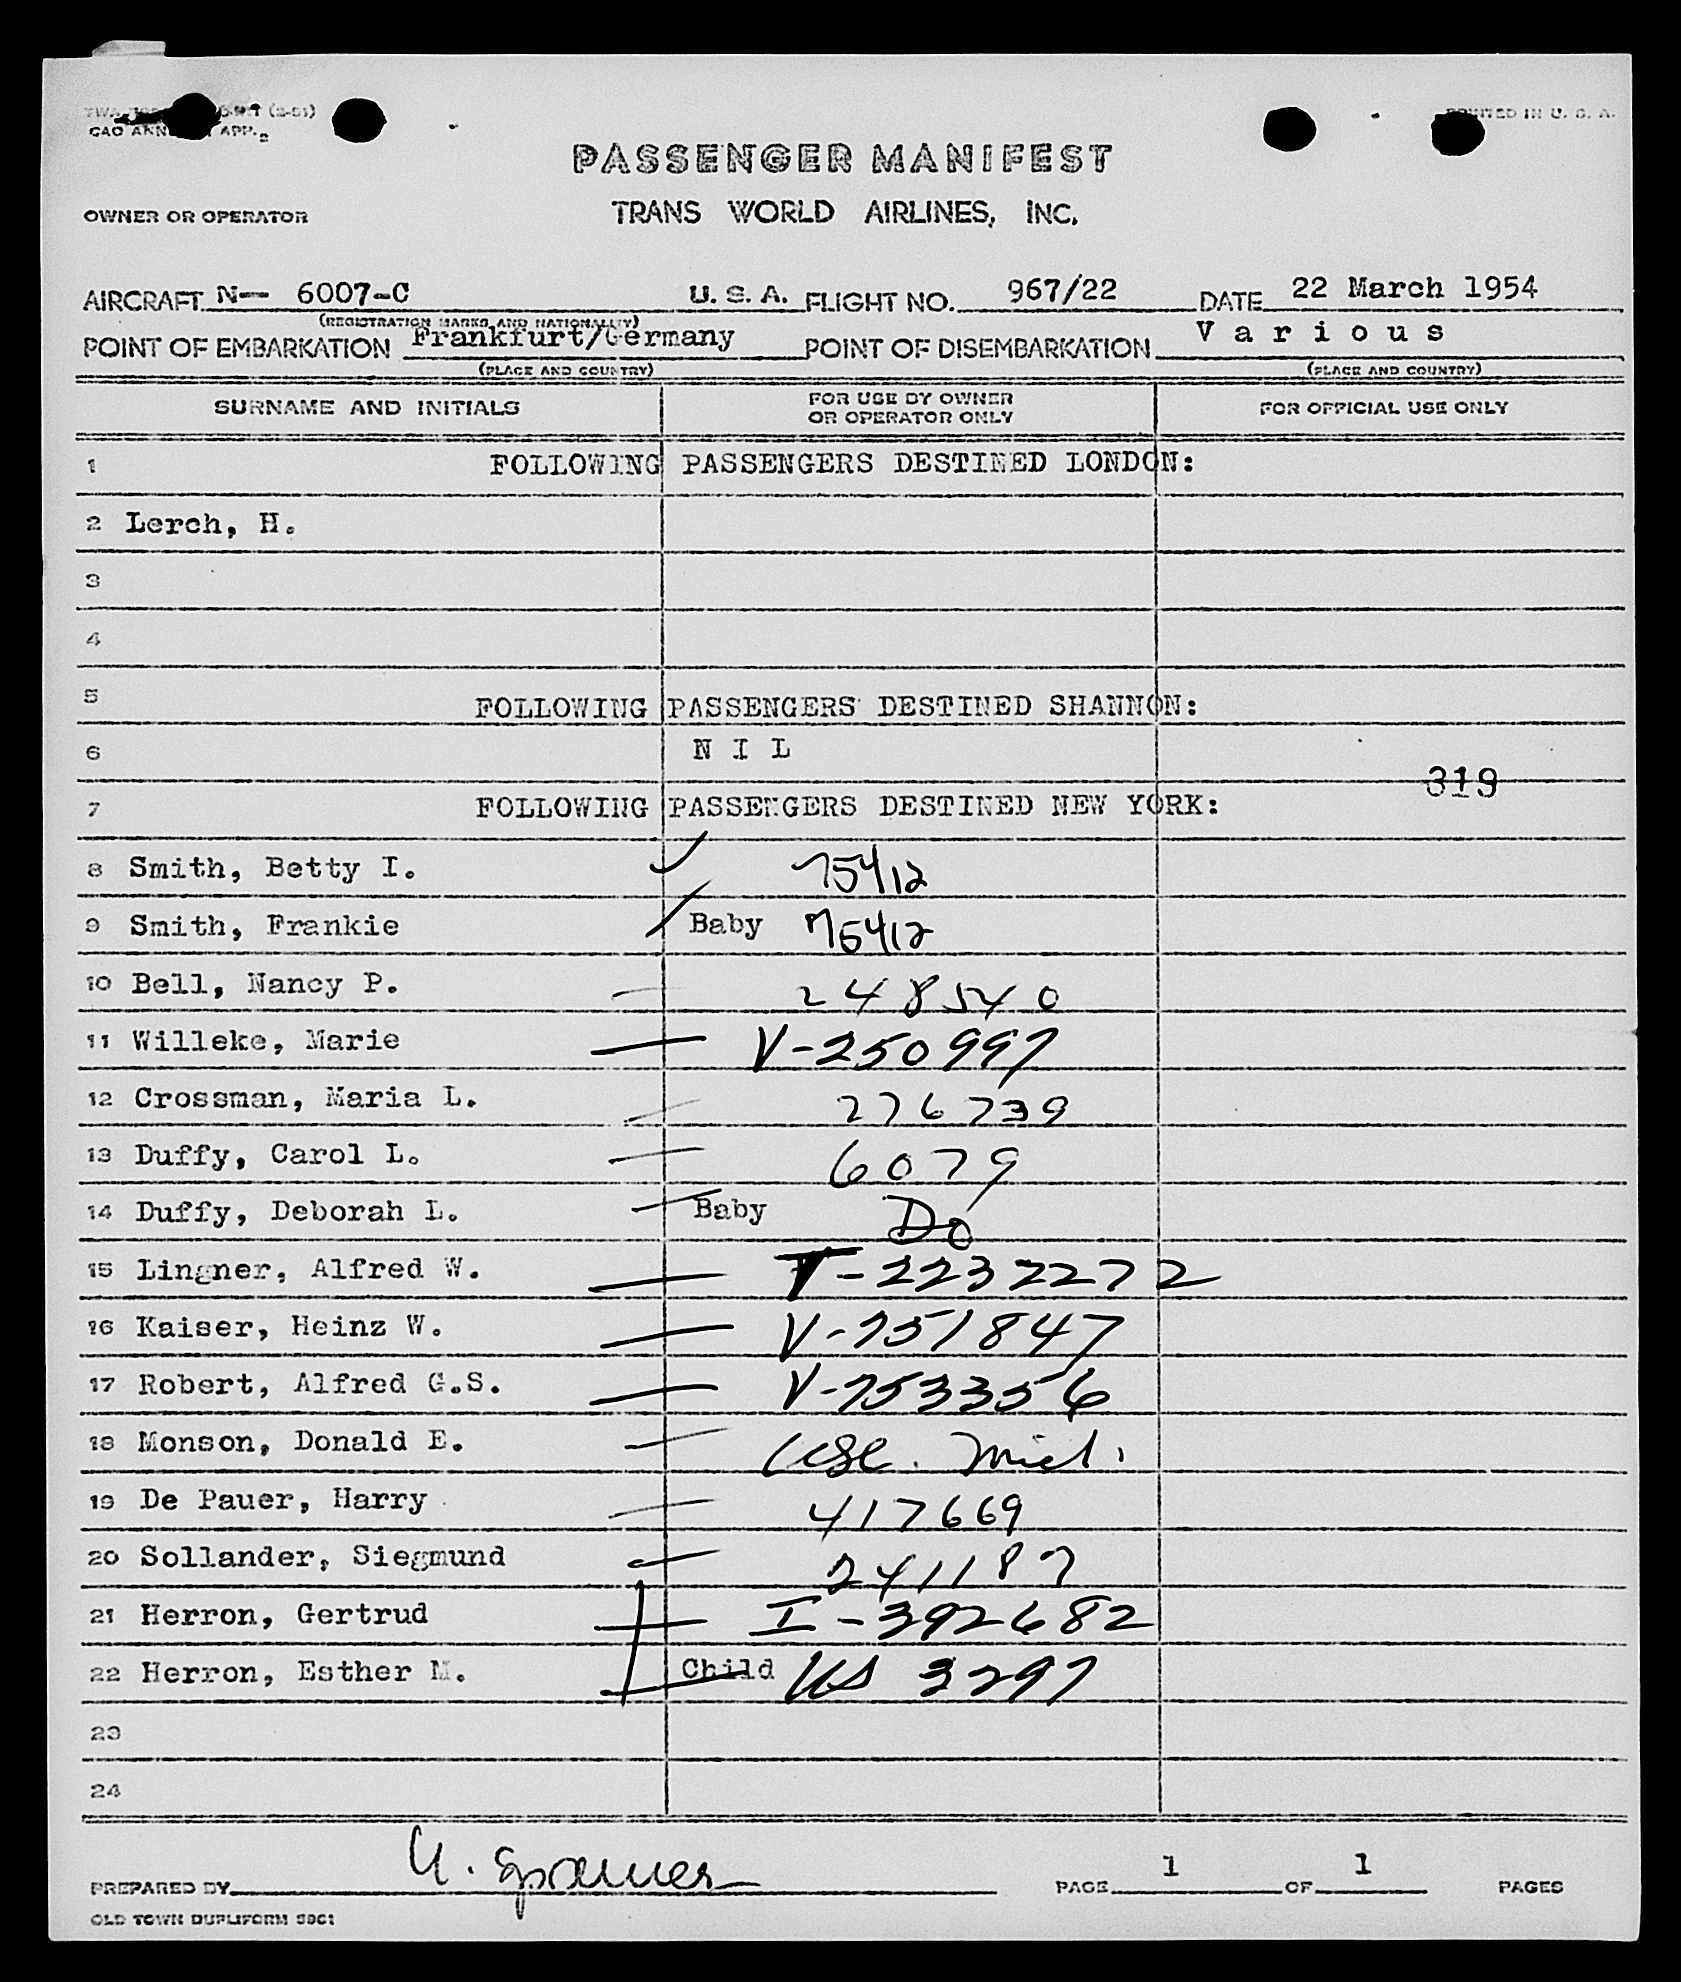 (2-51)
CAO ANN APP. 2
PRINTED IN U. S. A.
PASSENGER MANIFEST
OWNER OR OPERATOR TRANS WORLD AIRLINES, INC.
AIRCRAFT N— 6007-C U. S. A. FLIGHT NO. 967/22 DATE 22 March 1954
(REGISTRATION MARKS AND NATIONALITY)
POINT OF EMBARKATION Frankfurt/Germany POINT OF DISEMBARKATION Various
(PLACE AND COUNTRY) (PLACE AND COUNTRY)
SURNAME AND INITIALS FOR USE BY OWNER OR OPERATOR ONLY FOR OFFICIAL USE ONLY
1 FOLLOWING PASSENGERS DESTINED LONDON:
2 Lerch, H.
3
4
5 FOLLOWING PASSENGERS DESTINED SHANNON:
6 N I L
319
7 FOLLOWING PASSENGERS DESTINED NEW YORK:
8 Smith, Betty I. 75412
9 Smith, Frankie Baby 75412
10 Bell, Nancy P. 248540
11 Willeke, Marie V-250997
12 Crossman, Maria L. 276739
13 Duffy, Carol L. 6079
14 Duffy, Deborah L. Baby Do
15 Lingner, Alfred W. T-2232272
16 Kaiser, Heinz W. V-751847
17 Robert, Alfred G.S. V-753356
18 Monson, Donald E.
19 De Pauer, Harry 417669
20 Sollander, Siegmund 241187
21 Herron, Gertrud I-392682
22 Herron, Esther M. Child US 3297
23
24
PREPARED BY PAGE 1 OF 1 PAGES
OLD TOWN DUPLIFORM